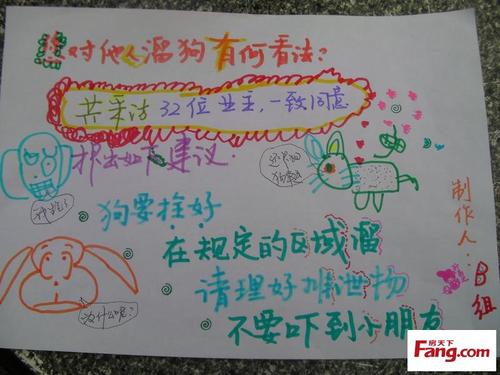 您对他人溜狗有何看法?
共采访32位业主,一致同意
提出如下建议:
狗要拴好
在规定的区域溜
请理好排泄物
不要吓到小朋友
为什么呢?
制作人:B组
房天下
Fang.com